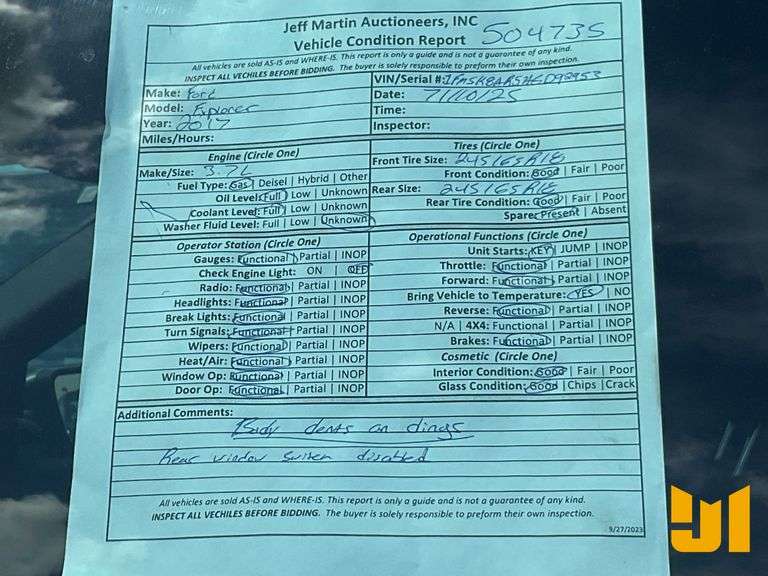 Jeff Martin Auctioneers, INC
Vehicle Condition Report 504735
All vehicles are sold AS-IS and WHERE-IS. This report is only a guide and is not a guarantee of any kind.
INSPECT ALL VECHILES BEFORE BIDDING. The buyer is solely responsible to preform their own inspection.
Make: Ford
Model: Explorer
Year: 2017
Miles/Hours:
VIN/Serial #:
Date: 7/10/25
Time:
Inspector:
Engine (Circle One)
Make/Size: 3.7L
Fuel Type: Gas | Deisel | Hybrid | Other
Oil Level: Full | Low | Unknown
Coolant Level: Full | Low | Unknown
Washer Fluid Level: Full | Low | Unknown
Tires (Circle One)
Front Tire Size: 245/65R18
Front Condition: Good | Fair | Poor
Rear Size: 245/65R18
Rear Tire Condition: Good | Fair | Poor
Spare: Present | Absent
Operator Station (Circle One)
Gauges: Functional | Partial | INOP
Check Engine Light: ON | OFF
Radio: Functional | Partial | INOP
Headlights: Functional | Partial | INOP
Break Lights: Functional | Partial | INOP
Turn Signals: Functional | Partial | INOP
Wipers: Functional | Partial | INOP
Heat/Air: Functional | Partial | INOP
Window Op: Functional | Partial | INOP
Door Op: Functional | Partial | INOP
Operational Functions (Circle One)
Unit Starts: KEY | JUMP | INOP
Throttle: Functional | Partial | INOP
Forward: Functional | Partial | INOP
Bring Vehicle to Temperature: YES | NO
Reverse: Functional | Partial | INOP
N/A | 4X4: Functional | Partial | INOP
Brakes: Functional | Partial | INOP
Cosmetic (Circle One)
Interior Condition: Good | Fair | Poor
Glass Condition: Good | Chips | Crack
Additional Comments:
Body dents an dings
Rear window switch disabled
All vehicles are sold AS-IS and WHERE-IS. This report is only a guide and is not a guarantee of any kind.
INSPECT ALL VECHILES BEFORE BIDDING. The buyer is solely responsible to preform their own inspection.
9/27/2023